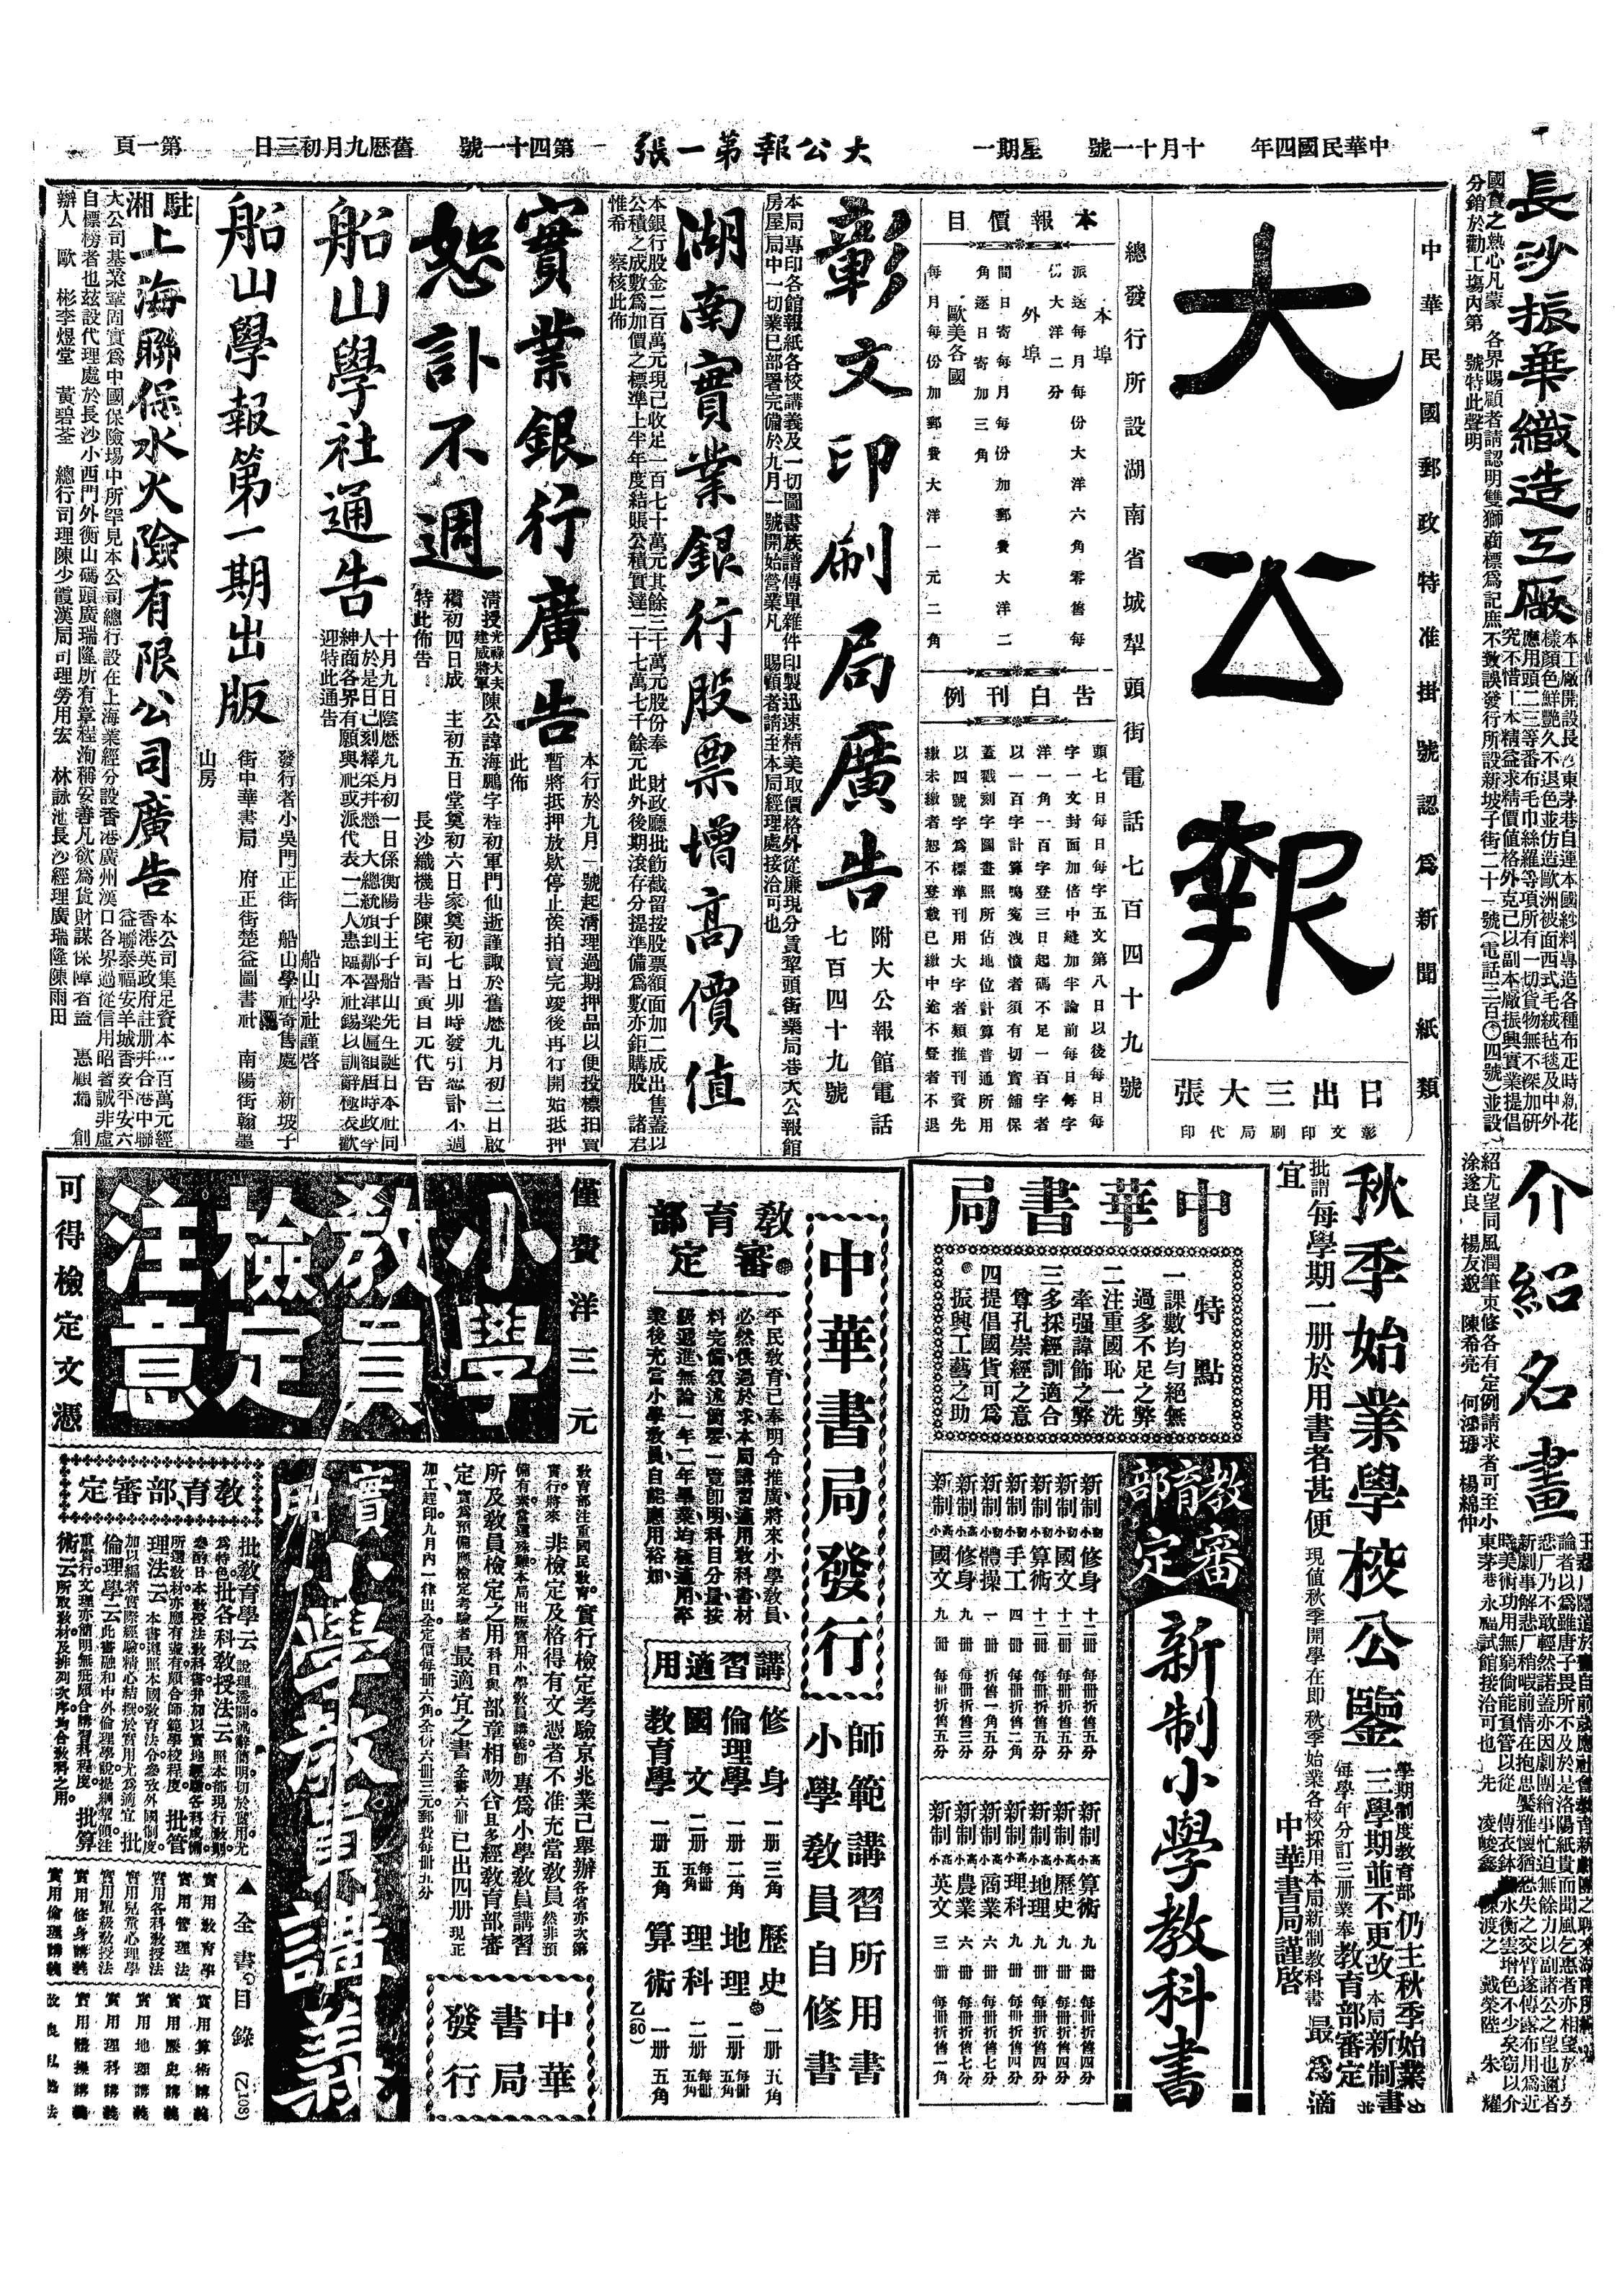 中華民國四年
十月十一號
星期一
大公報第一張
第四十一號
舊曆九月初三日
第一頁
長沙振華織造工廠
本工廠開設長沙東茅巷自運本國紗料專造各種布疋時新花
樣顏色鮮艷久不退色並仿造歐洲被面西式毛絨毡毯及中外
應用頭二三等番布毛巾絲羅等項所有一切貨物無不深加研
究不惜工本精益求精價值格外克己以副本廠振興實業提倡
國貨之熱心凡蒙 各界賜顧者請認明雙獅商標為記庶不致誤發行所設新坡子街二十一號(電話三百〇四號)並設
分銷於勸工塲內第 號特此聲明
介紹名畫
論者以為雖唐子畏所不及於是洛陽紙貴而聞風乞惠者亦相望
紹尤望同風潤筆東修各有定例請求者可至小東茅巷永福試館接洽可也
涂遂良 楊友邈 陳希亮 何鴻璆 楊綿仲
中華民國郵政特准掛號認為新聞紙類
大公報
日出三大張
彰文印刷局代印
總發行所設湖南省城犁頭街電話七百四十九號
本報價目
本埠
派送每月每份大洋六角零售每
份大洋二分
外埠
間日寄每月每份加郵費大洋二
角逐日寄加三角
歐美各國
每月每份加郵費大洋一元二角
告白刊例
頭七日每日每字五文第八日以後每日每
字一文封面加倍中縫加半論前每日每字
洋一角一百字登三日起碼不足一百字者
以一百字計算鳴寃洩憤者須有切實舖保
蓋戳刻字圖畫照所佔地位計算普通所用
以四號字為標準刊用大字者類推刊資先
繳未繳者恕不登載已繳中途不登者不退
彰文印刷局廣告
附大公報館電話
七百四十九號
本局專印各館報紙各校講義及一切圖書族譜傳單雜件印製迅速精美取價格外從廉現分賃犂頭街藥局巷大公報館
房屋局中一切業已部署完備於九月一號開始營業凡 賜顧者請至本局經理處接洽可也
湖南實業銀行股票增高價值
本銀行股金二百萬元現已收足一百七十萬元其餘三十萬元股份奉 財政廳批飭截留按股票額面加二成出售蓋以
公積之成數為加價之標準上半年度結賬公積實達二十七萬七千餘元此外後期滾存分提準備為數亦鉅購股 諸君
惟希 察核此佈
實業銀行廣告
本行於九月一號起清理過期押品以便投標拍賣
暫將抵押放欵停止俟拍賣完竣後再行開始抵押
此佈
恕訃不週
清授光祿大夫建威將軍陳公諱海鵬字桂初軍門仙逝謹諏於舊歷九月初三日啟
欑初四日成 主初五日堂奠初六日家奠初七日卯時發引恐訃不週
特此佈告 長沙織機巷陳宅司書黃日元代告
船山學社通告
十月九日陰歷九月初一日係衡陽子王子船山先生誕日本社同
人於是日已刻釋菜幷懸 大總統頒到鄒魯津梁匾額屆時政學
紳商各界有願與祀或派代表一二人惠臨本社錫以訓辭極表歡
迎特此通告 船山學社謹啓
船山學報第一期出版
發行者小吳門正街 船山學社寄售處 新坡子
街中華書局 府正街楚益圖書社 南陽街翰墨
山房
駐湘上海聯保水火險有限公司廣告
本公司集足資本一百萬元經
香港英政府註册幷合港中聯
益聯泰福安羊城香安平安六
大公司基業鞏固實為中國保險塲中所罕見本公司總行設在上海業經分設香港廣州漢口各界過從信用昭著誠非虛
自標榜者也玆設代理處於長沙小西門外衡山碼頭廣瑞隆所有章程洵稱妥善凡欲為貨財謀保障者盍 惠顧焉 創
辦人 歐 彬李煜堂 黃碧荃 總行司理陳少霞漢局司理勞用宏 林詠池長沙經理廣瑞隆陳雨田
秋季始業學校公鑒
學期制度教育部仍主秋季始業
三學期並不更改本局新制書
每學年分訂三册業奉教育部審定
批謂每學期一册於用書者甚便現值秋季開學在即秋季始業各校採用本局新制教科書最為適
宜
中華書局謹啓
中華書局
特點
一課數均勻絕無
過多不足之弊
二注重國恥一洗
牽强諱飾之弊
三多採經訓適合
尊孔崇經之意
四提倡國貨可為
振興工藝之助
教育部審定
新制小學教科書
新制初小修身 十二册 每册折售五分
新制初小國文 十二册 每册折售五分
新制初小算術 十二册 每册折售五分
新制初小手工 四册 每册折售二角
新制初小體操 一册 折售一角五分
新制高小修身 九册 每册折售三分
新制高小國文 九册 每册折售五分
新制高小算術 九册 每册折售四分
新制高小歷史 九册 每册折售四分
新制高小地理 九册 每册折售四分
新制高小理科 九册 每册折售四分
新制高小商業 六册 每册折售七分
新制高小農業 六册 每册折售七分
新制高小英文 三册 每册折售一角
中華書局發行
師範講習所用書
小學教員自修書
教育部審定
平民教育已奉明令推廣將來小學教員
必然供過於求本局講習適用教科書材
料完備叙述簡要一覽即明科目分量按
級遞進無論一年二年畢業均極適用卒
業後充當小學教員自能應用裕如
講習適用
修身 一册 三角
倫理學 一册 二角
國文 二册 每册五角
教育學 一册 五角
歷史 一册 五角
地理 二册 每册五角
理科 二册 每册五角
算術 一册 五角
乙(80)
僅費洋三元
小學教員檢定注意
可得檢定文憑
教育部注重國民教育實行檢定考驗京兆業已舉辦各省亦次第
實行將來非檢定及格得有文憑者不准充當教員然非預
備有素當選殊難本局出版實用小學教員講義即專為小學教員講習
所及教員檢定之用科目與部章相吻合且多經教育部審
定實為預備應檢定考驗者最適宜之書全書六册已出四册現正
加工趕印九月內一律出全定價每册六角全份六册三元郵費每册九分
中華書局發行
實用小學教員講義
教育部審定
批教育學云說理透闢遣辭簡明切於實用尤
為特色批各科教授法云照本部現行教則
參酌日本教授法教科書并加以實地經驗各科咸備
所選教材亦應有盡有頗合師範學校程度批管
理法云本書遵照本國教育法令參攷外國制度
加以編者實際經驗精心結撰於實用尤為適宜批
倫理學云此書融和中外倫理學說提綱挈領注
重實行文理亦簡明無疵頗合講習科程度批算
術云所取教材及排列次序均合教科之用
▲全書目錄(乙108)
實用教育學
實用管理法
實用各科教授法
實用兒童心理學
實用單級教授法
實用修身講義
實用倫理講義
實用算術講義
實用歷史講義
實用地理講義
實用理科講義
實用體操講義
改良私塾法